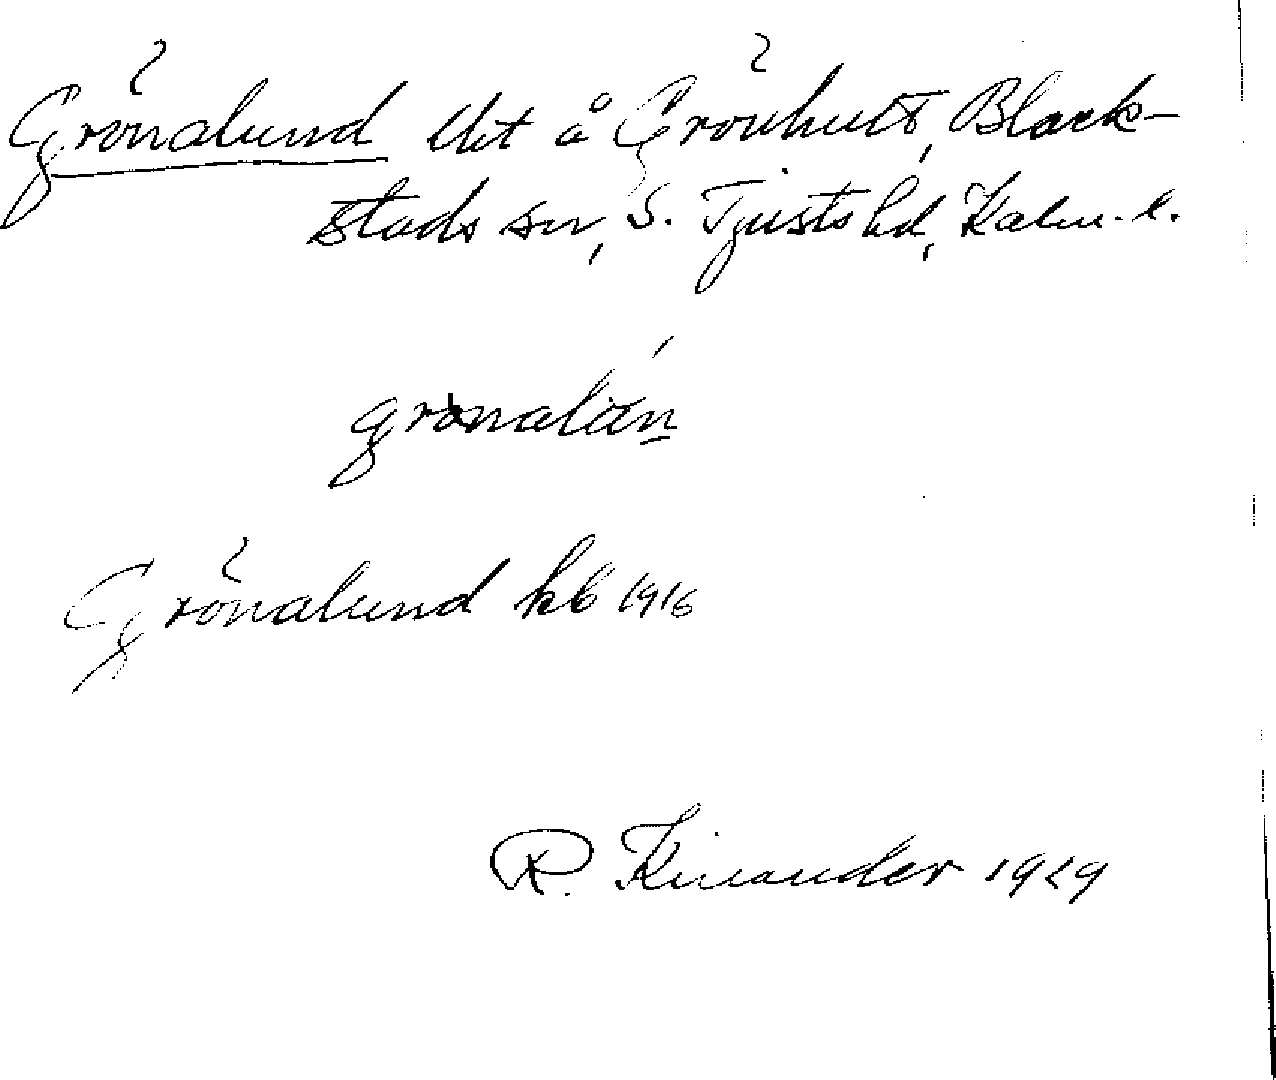 Grönalund lht å Grönhult, Black-
stads sn, S. Tjusts hd, Kalm. l.
grönalún
Grönalund kb 1916
R. Kinander 1929